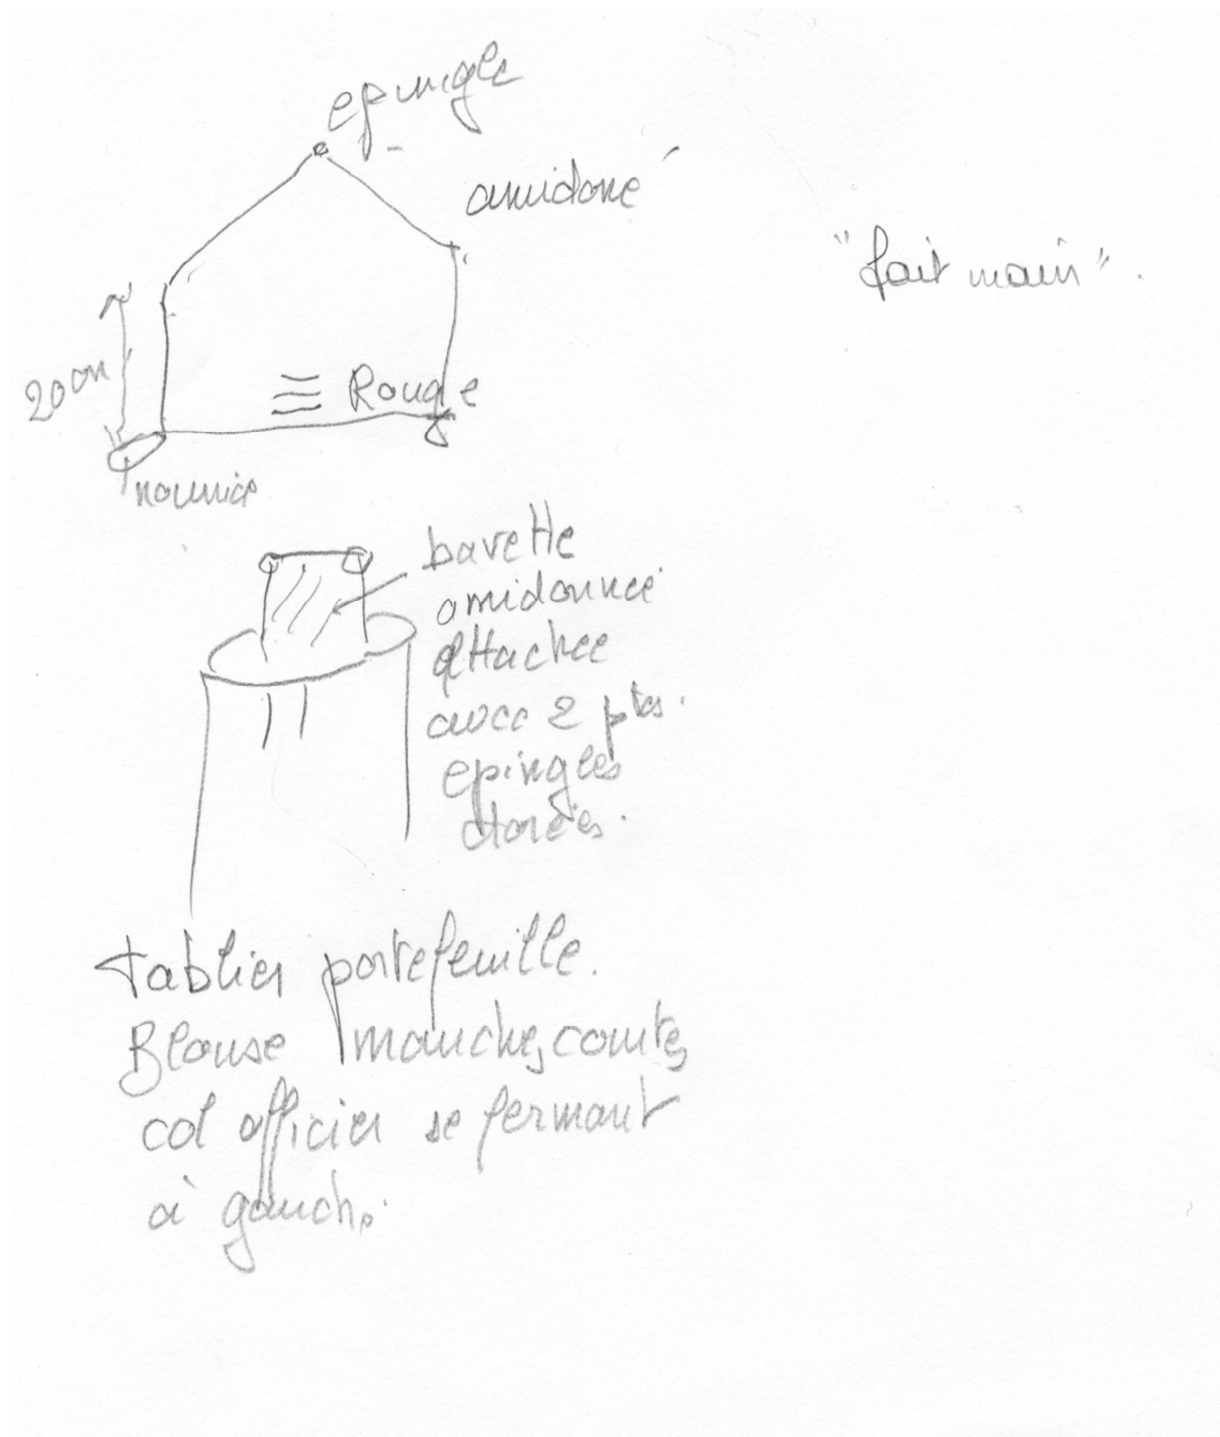 epingle
amidoné
"fait main".
20 cm
Rouge
nourrice
bavette
amidonnée
attachée
avec 2 ptes.
epingles
dorées.
tablier portefeuille.
Blouse manches courtes
col officier se fermant
à gauche.